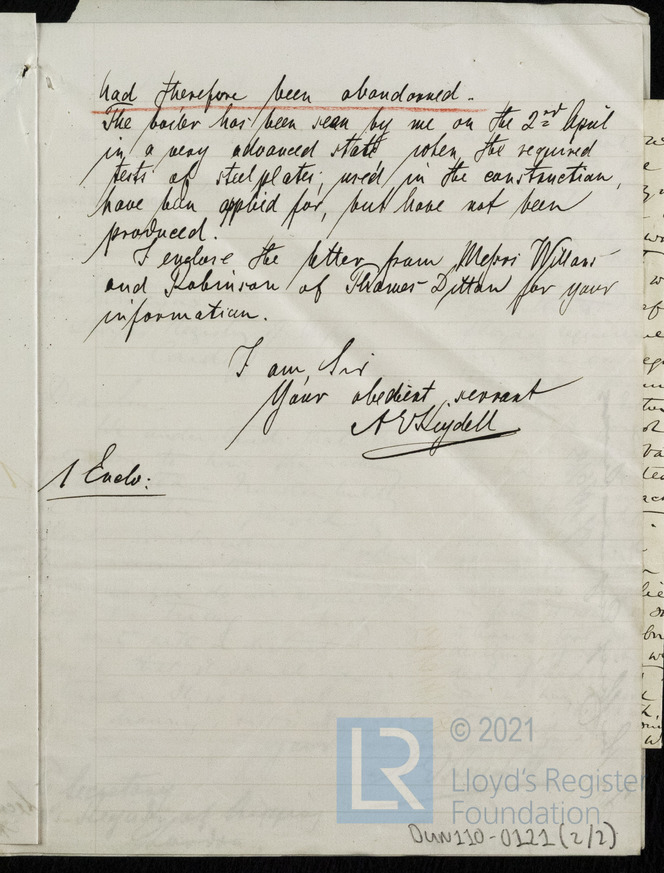 had therefore been abandonned.
The boiler has been seen by me on the 2nd April
in a very advanced state when the required
tests of steelplates, used in the construction,
have been applied for, but have not been
produced.
I enclose the letter from Messrs Willans
and Robinson of Thames Ditton for your
information.
I am, Sir
Your obedient servant
1 Enclo:
LR
© 2021
Lloyd's Register
Foundation
DUN110-0121 (2/2)